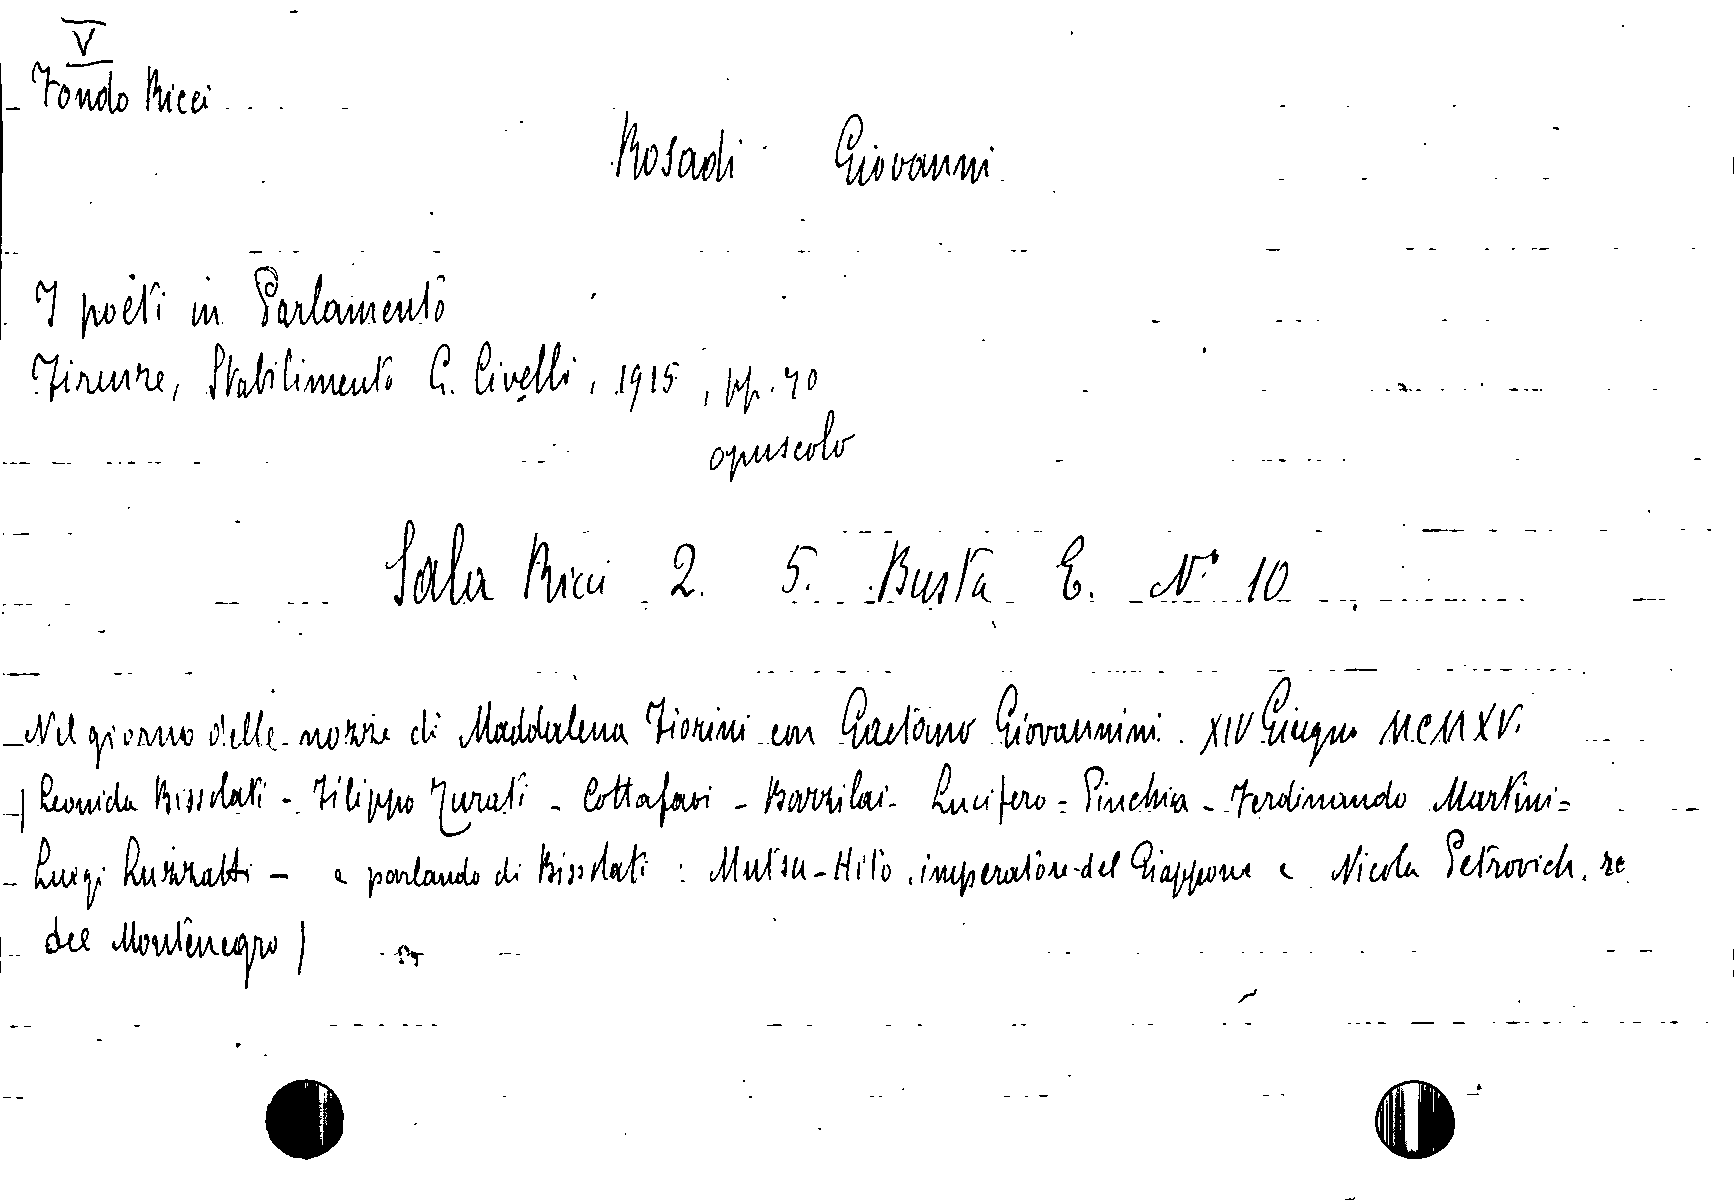 V
Fondo Ricci
Rosadi Giovanni
I poeti in Parlamento
Firenze, Stabilimento G. Civelli, 1915, pp. 40
opuscolo
Sala Ricci 2. 5. Busta E. N° 10
Nel giorno delle nozze di Maddalena Fiorini con Gaetano Giovannini. XIV Giugno MCMXV.
(Leonida Bissolati - Filippo Turati - Cottafavi - Barzilai - Lucifero = Pinchia - Ferdinando Martini =
Luigi Luzzatti - e parlando di Bissolati : Mutsu-Hito, imperatore del Giappone e Nicola Petrovich, re
del Montenegro)